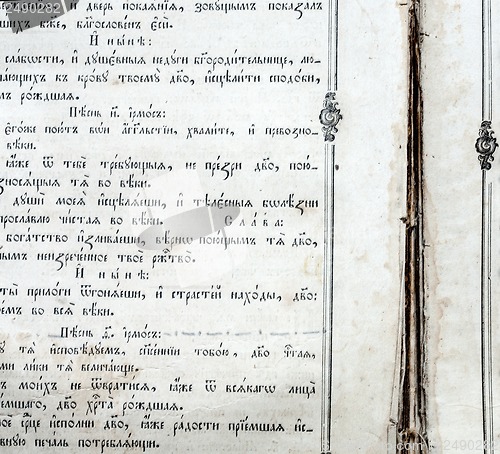 и҆ две́рь покаѧ́нїѧ, зовꙋ́щымъ показа́лъ
бж҃е, благослове́нъ є҆сѝ.
И҆ ны́нѣ:
сла́бѡсти, и҆ дꙋшє́вныѧ недꙋ́ги бг҃ороди́тельнице, лю-
къ кро́вꙋ твоемꙋ̀ дв҃о, и҆сцѣли́ти сподо́би,
ро́ждшаѧ.
Пѣ́снь и҃. і҆рмо́съ:
є҆го́же пою́тъ во́и а҆́гг҃льстїи, хвали́те, и҆ превозно-
вѣ́ки.
ꙗ҆̀же ѿ тебє̀ тре́бꙋющыѧ, не пре́зри дв҃о, пою́-
тѧ̀ во вѣ́ки.
дꙋшѝ моеѧ̀ и҆сцѣлѧ́еши, и҆ тѣлє́сныѧ бѡлѣ́зни
чи́стаѧ во вѣ́ки. Сла́ва:
бога́тство и҆злива́еши, вѣ́рнѡ пою́щымъ тѧ̀ дв҃о,
неизрече́нное твоѐ ржⷭ҇тво̀.
И҆ ны́нѣ:
ты̀ прило́ги ѿгонѧ́еши, и҆ страсте́й нахо́ды, дв҃о:
во всѧ̑ вѣ́ки.
Пѣ́снь ѳ҃. і҆рмо́съ:
тѧ̀ и҆сповѣ́дꙋемъ, сп҃се́ннїи тобо́ю, дв҃о чⷭ҇таѧ,
ли́ки тѧ̀ велича́юще.
мои́хъ не ѿврати́сѧ, ꙗ҆́же ѿ всѧ́кагѡ лица̀
дв҃о хрⷭ҇та̀ ро́ждшаѧ.
се́рдце и҆спо́лни дв҃о, ꙗ҆́же ра́дости прїе́мшаѧ и҆с-
печа́ль потреблѧ́ющи.